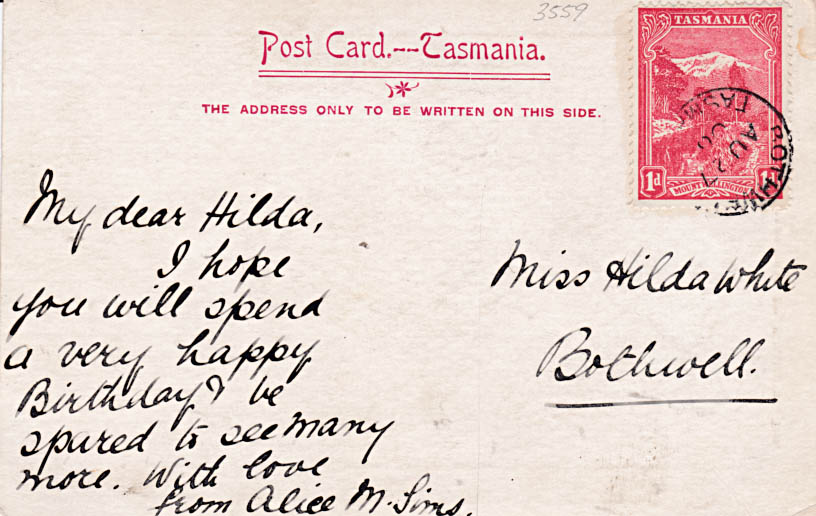 3559
Post Card.--Tasmania.
THE ADDRESS ONLY TO BE WRITTEN ON THIS SIDE.
TASMANIA
1d 1d
MOUNT WELLINGTON
BOTHWELL
TASM
AU 27
My dear Hilda,
I hope
you will spend
a very happy
Birthday & be
spared to see many
more. With love
from Alice M. Sims.
Miss Hilda White
Bothwell.